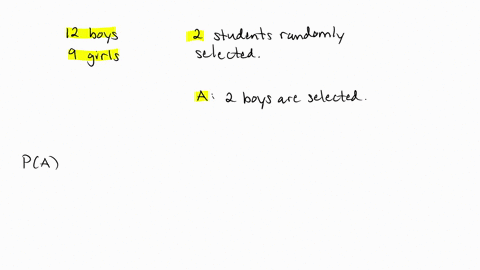 12 boys
9 girls
2 students randomly
selected.
A: 2 boys are selected.
P(A)